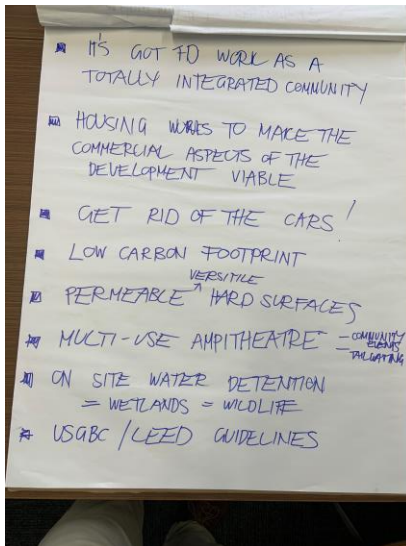 IT'S GOT TO WORK AS A
TOTALLY INTEGRATED COMMUNITY
HOUSING WORKS TO MAKE THE
COMMERCIAL ASPECTS OF THE
DEVELOPMENT VIABLE
GET RID OF THE CARS!
LOW CARBON FOOTPRINT
VERSITILE
PERMEABLE HARD SURFACES
MULTI-USE AMPITHEATRE - COMMUNITY
- EVENTS
TAILGATING
ON SITE WATER DETENTION
= WETLANDS = WILDLIFE
USGBC / LEED GUIDELINES